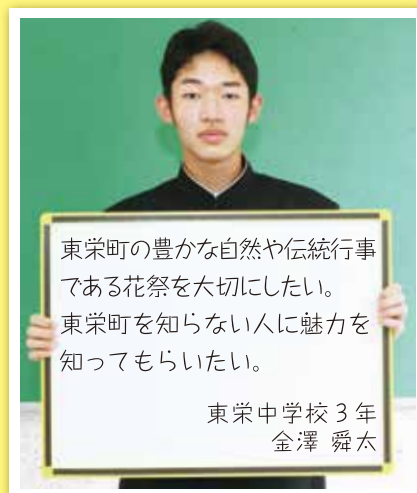 東栄町の豊かな自然や伝統行事
である花祭を大切にしたい。
東栄町を知らない人に魅力を
知ってもらいたい。
東栄中学校3年
金澤 舜太